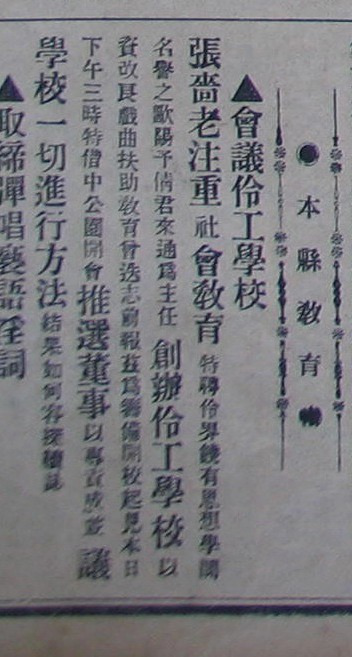 本縣教育
▲會議伶工學校
張嗇老注重社會敎育特聘伶界饒有思想學問
名譽之歐陽予倩君來通爲主任創辦伶工學校以
資改良戲曲扶助敎育曾迭志前報茲爲籌備開校起見本日
下午三時特借中公園開會推選董事以專責成並議
學校一切進行方法結果如何容探續誌
▲取締彈唱褻語淫詞